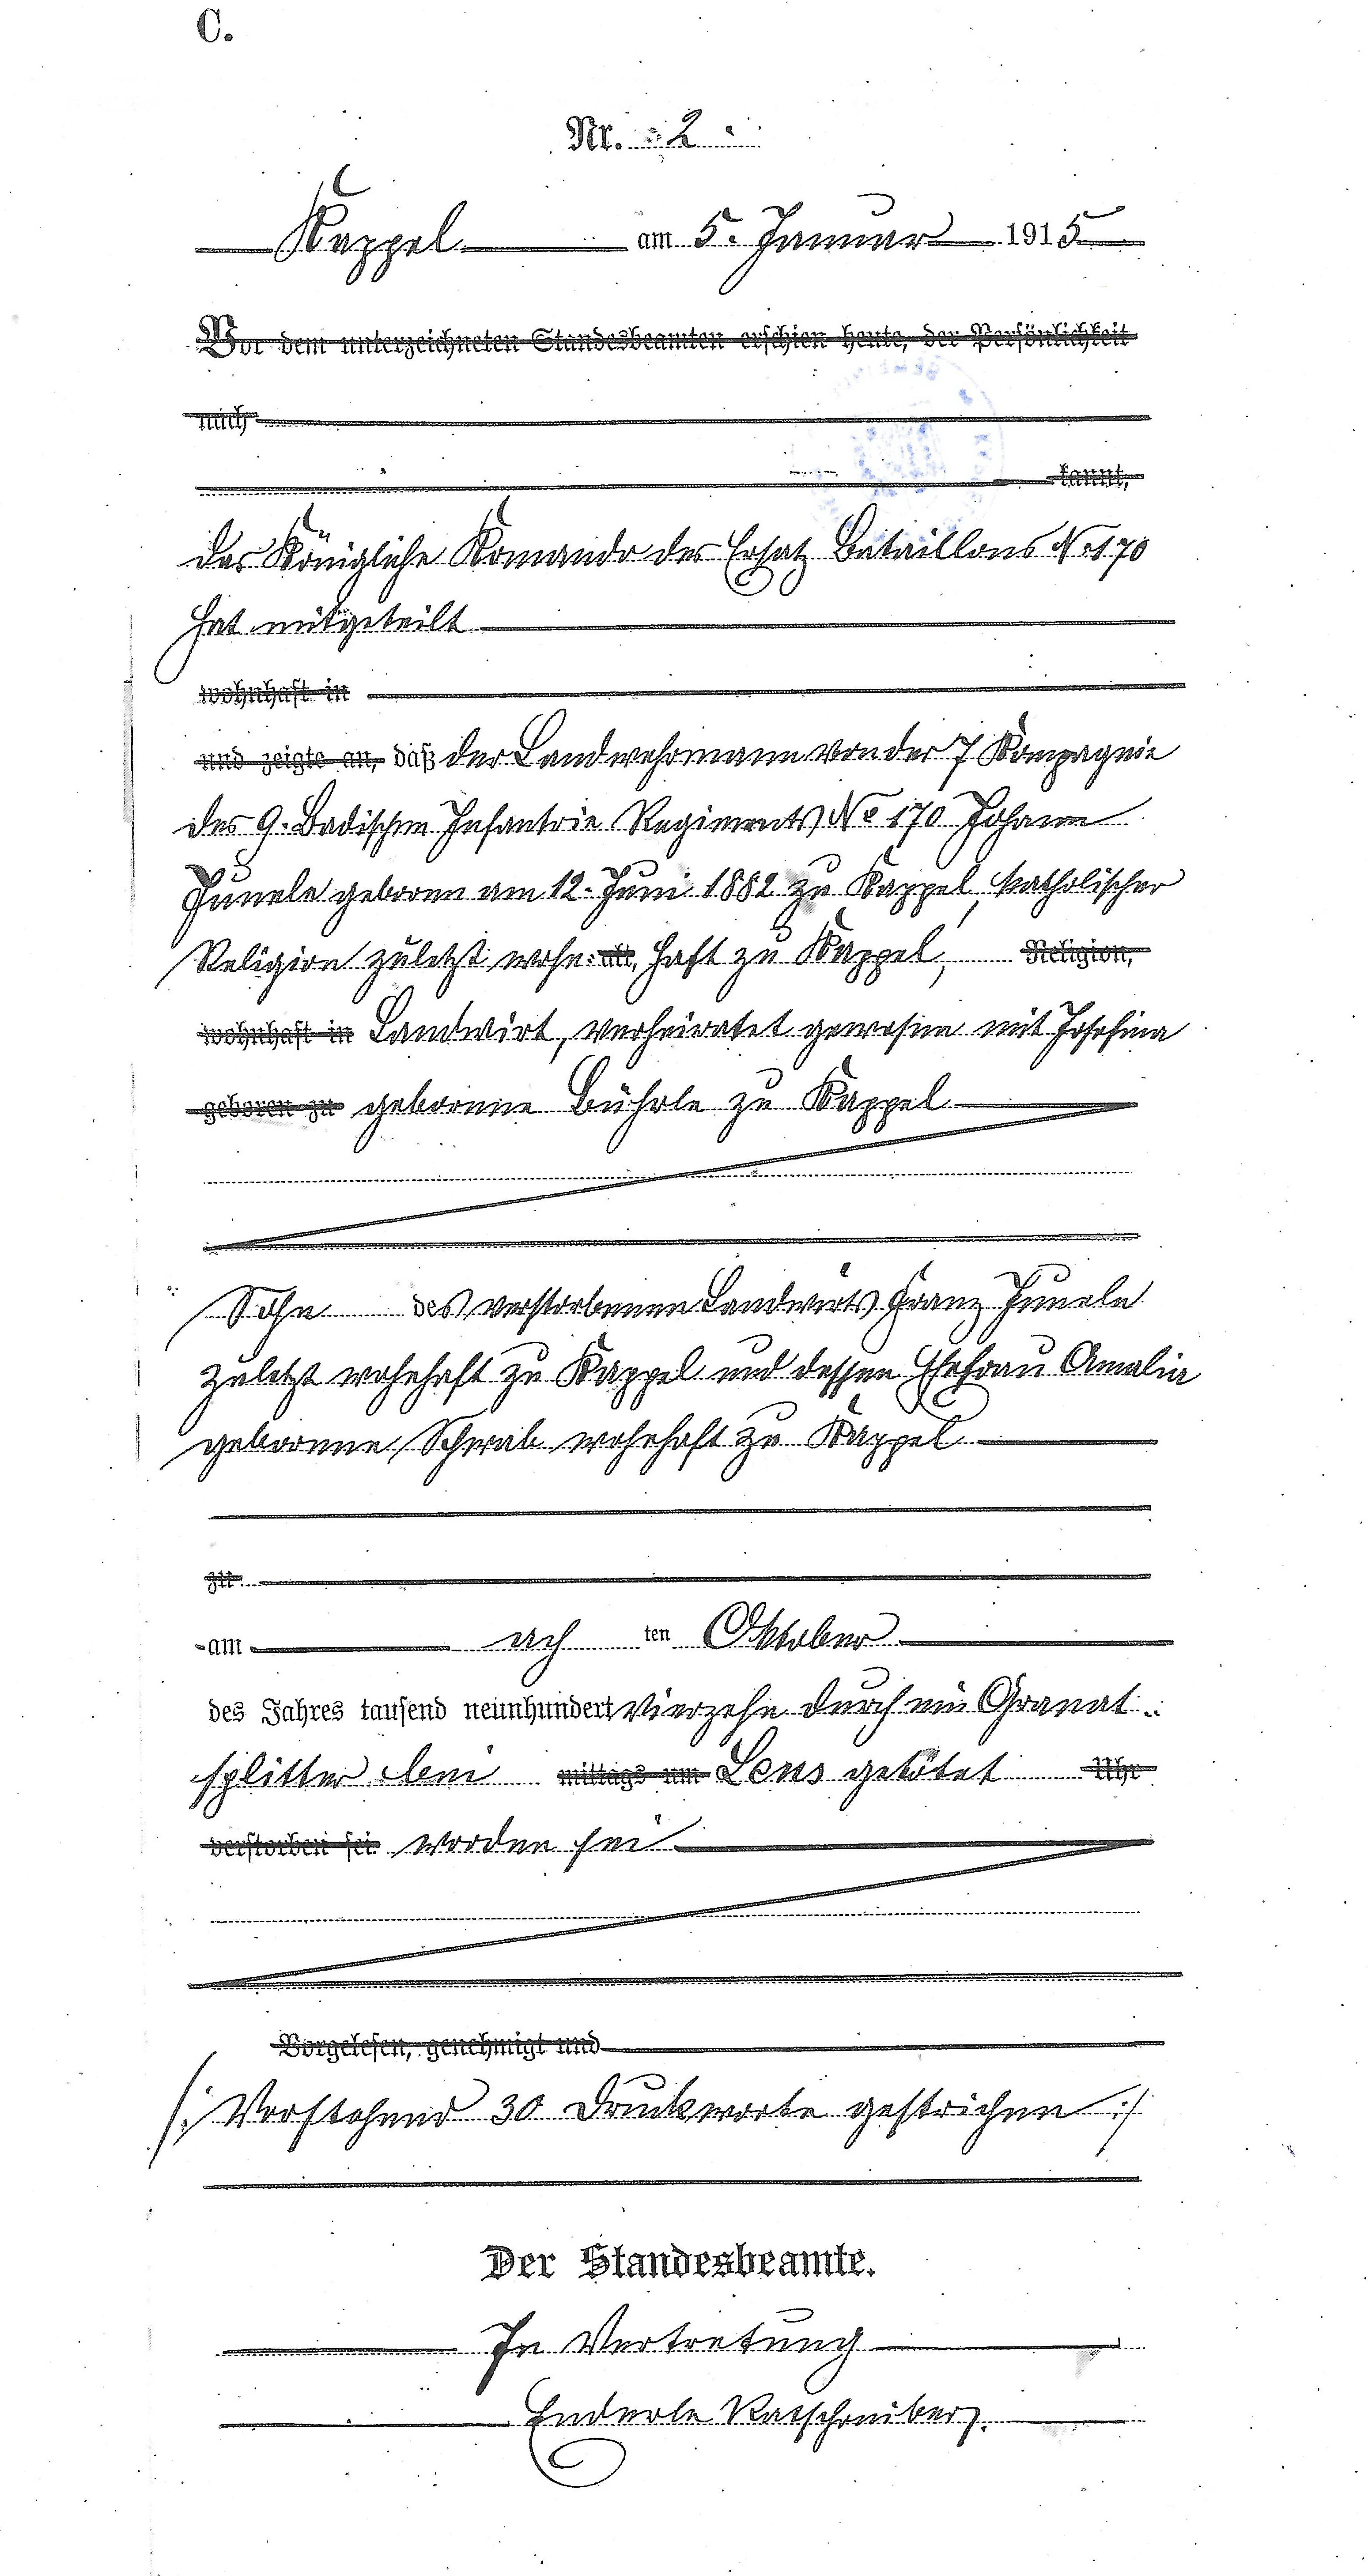 C.
Nr. 2
Kappel am 5. Januar 1915
Vor dem unterzeichneten Standesbeamten erschien heute, der Persönlichkeit
nach
kannt,
das Königliche Komando des Ersatz Bataillons No 170
hat mitgeteilt
wohnhaft in
und zeigte an, daß der Landwehrmann von der 7 Kompagnie
des 9. Badischen Infantrie Regiments No 170 Johann
geboren am 12. Juni 1882 zu Kappel, katholischer
Religion zuletzt wohn- alt, haft zu Kappel, Religion,
wohnhaft in Landwirt, verheiratet gewesen mit Josefina
geboren zu geborene Bührle zu Kappel
Sohn des verstorbenen Landwirts Franz
zuletzt wohnhaft zu Kappel und dessen Ehefrau Amalia
geborenne Schwab wohnhaft zu Kappel
zu
am ach ten Oktober
des Jahres tausend neunhundert vierzehn durch ein Granat-
splitter bei mittags um Lens getötet Uhr
verstorben sei worden sei
Vorgelesen, genehmigt und
/: Vorstehend 30 Druckworte gestrichen :/
Der Standesbeamte.
In Vertretung
Enderle Ratschreiber